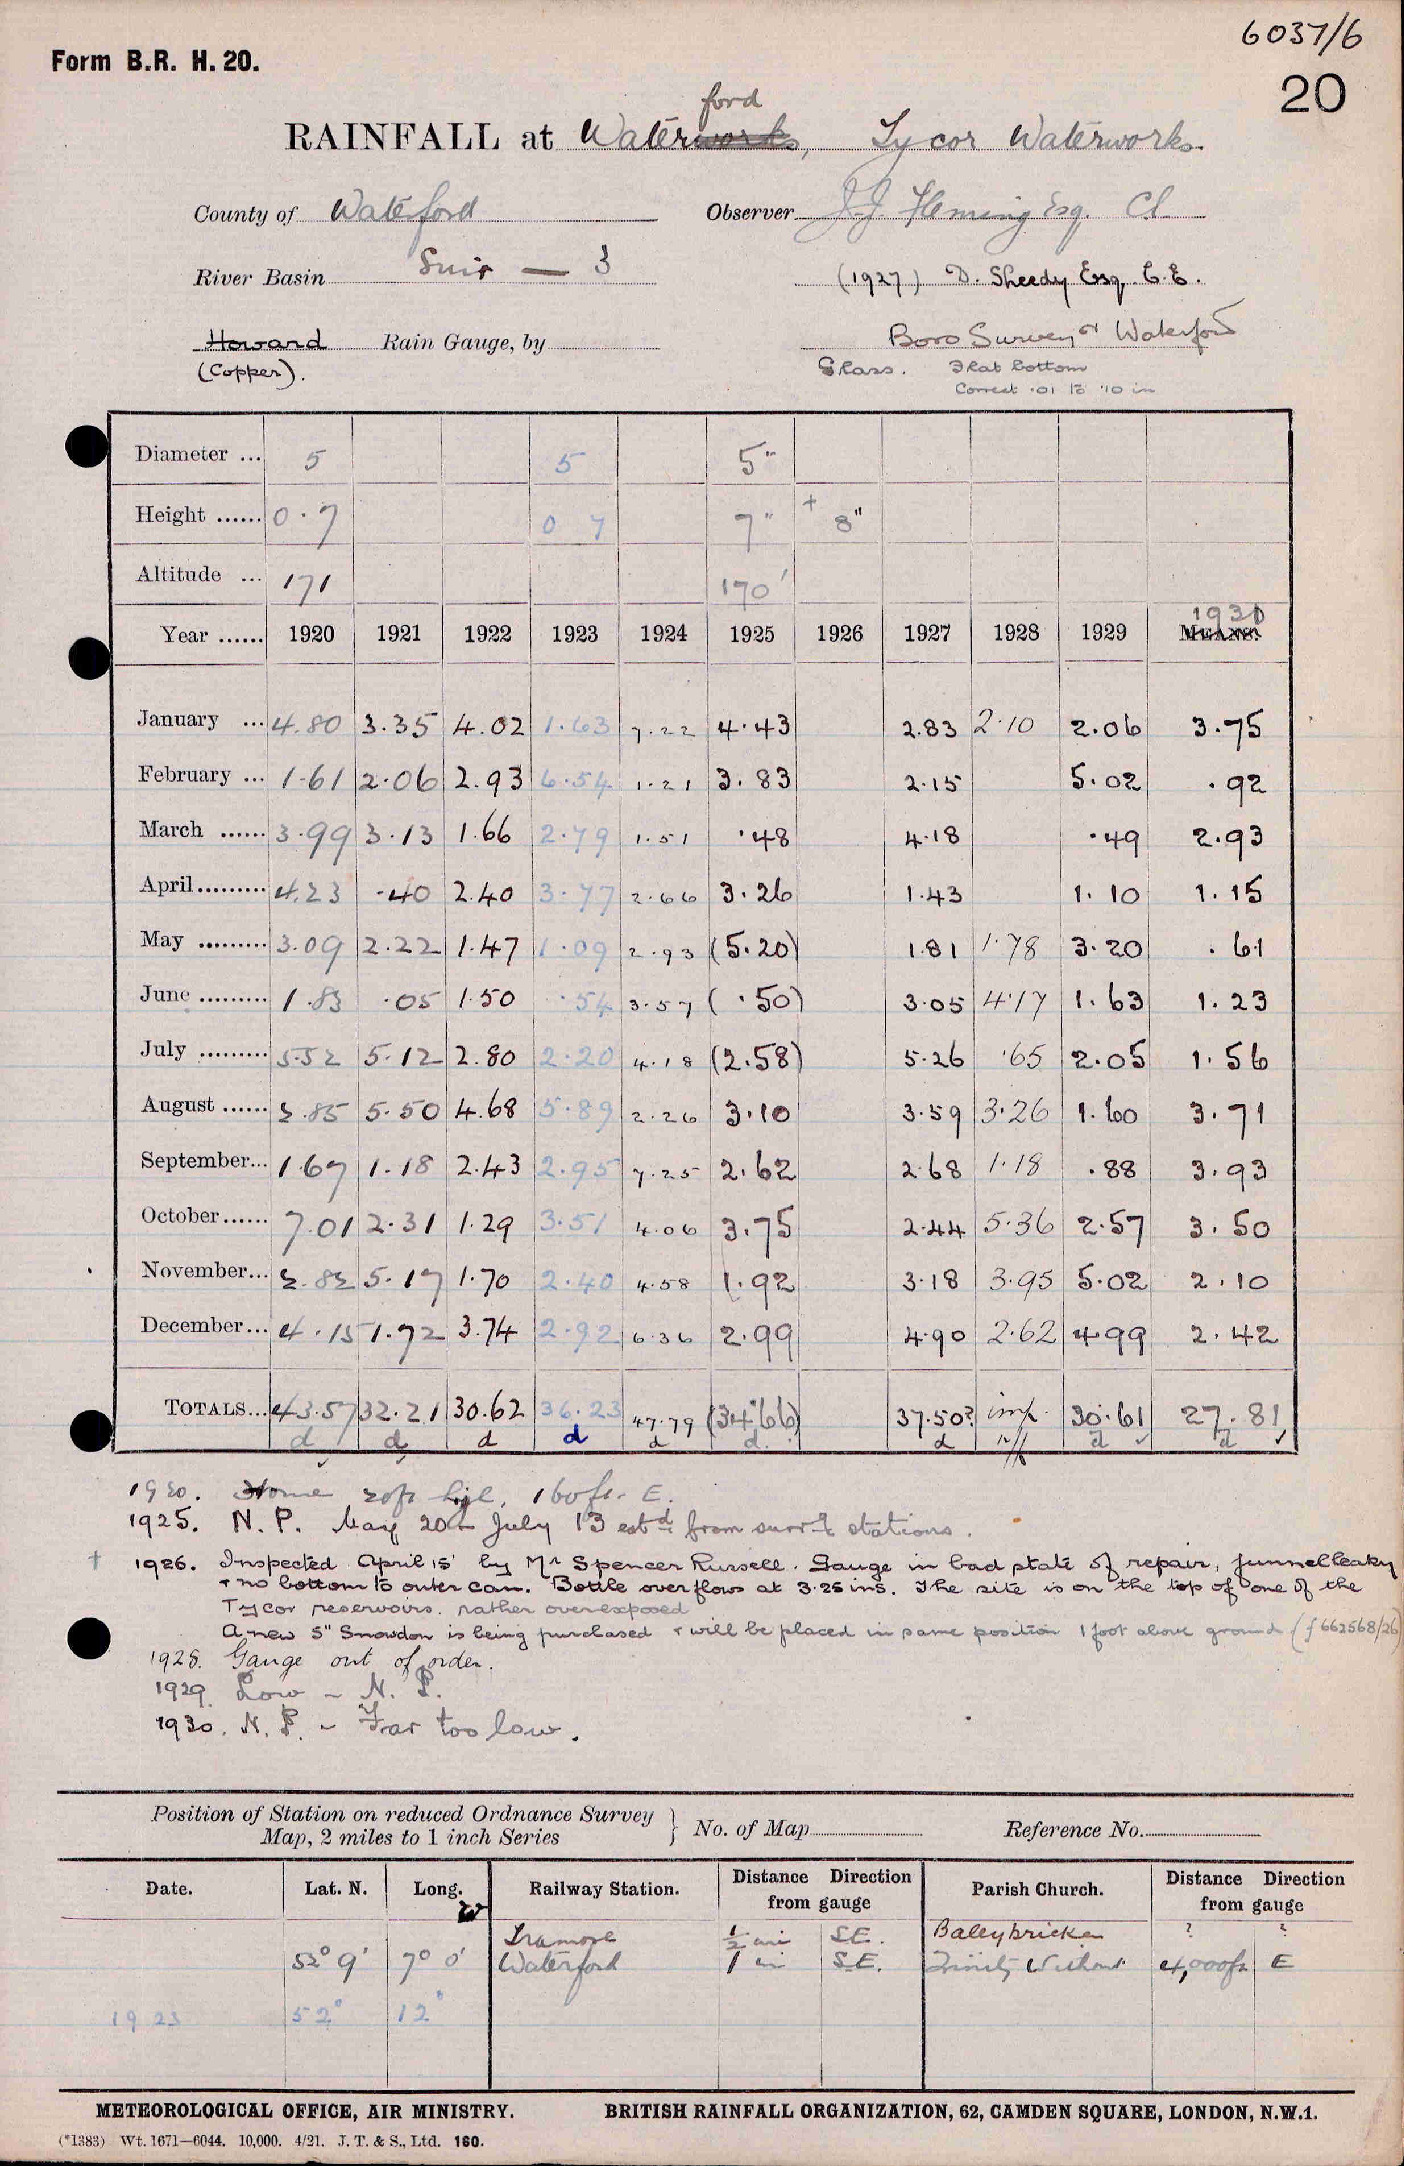 6037/6
Form B.R. H. 20.
20
ford
RAINFALL at Waterworks, Tycor Waterworks.
County of Waterford Observer J.J. Fleming Esq. C.E.
River Basin Suir — 3 (1927) D. Sheedy Esq. C.E.
Howard Rain Gauge, by Boro Surveyor Waterford
(Copper). Glass. Flat bottom
Correct .01 to .10 in
Diameter ... 5 5 5"
Height ...... 0.7 0 7 7" + 8"
Altitude ... 171 170'
1930
Year ...... 1920 1921 1922 1923 1924 1925 1926 1927 1928 1929 MEANS.
January ... 4.80 3.35 4.02 1.63 7.22 4.43 2.83 2.10 2.06 3.75
February ... 1.61 2.06 2.93 6.54 1.21 3.83 2.15 5.02 .92
March ...... 3.99 3.13 1.66 2.79 1.51 .48 4.18 .49 2.93
April......... 4.23 .40 2.40 3.77 2.66 3.26 1.43 1.10 1.15
May ......... 3.09 2.22 1.47 1.09 2.93 (5.20) 1.81 1.78 3.20 .61
June ......... 1.83 .05 1.50 .54 3.57 (.50) 3.05 4.17 1.63 1.23
July ......... 5.52 5.12 2.80 2.20 4.18 (2.58) 5.26 .65 2.05 1.56
August ...... 2.85 5.50 4.68 5.89 2.26 3.10 3.59 3.26 1.60 3.71
September... 1.67 1.18 2.43 2.95 7.25 2.62 2.68 1.18 .88 3.93
October...... 7.01 2.31 1.29 3.51 4.06 3.75 2.44 5.36 2.57 3.50
November... 2.82 5.17 1.70 2.40 4.58 1.92 3.18 3.95 5.02 2.10
December... 4.15 1.72 3.74 2.92 6.36 2.99 4.90 2.62 4.99 2.42
TOTALS... 43.57 32.21 30.62 36.23 47.79 (34.66) 37.50? imp. 30.61 27.81
d d d d d d. d d ✓ d ✓
1920. 160ft. E.
1925. N.P. May 20 to July 13 estd from surrg stations.
† 1926. Inspected April 15 by Mr Spencer Russell. Gauge in bad state of repair, funnel leaky
+ no bottom to outer can. Bottle overflows at 3.25 ins. The site is on the top of one of the
Tycor reservoirs. rather overexposed
A new 5" Snowdon is being purchased + will be placed in same position 1 foot above ground (f 662568/26)
1928. Gauge out of order.
1929. Low ~ N. P.
1930. N. P. ~ Far too low.
Position of Station on reduced Ordnance Survey
Map, 2 miles to 1 inch Series } No. of Map Reference No.
Date. Lat. N. Long. W Railway Station. Distance Direction from gauge Parish Church. Distance Direction from gauge
Tramore ½ mi S.E. Baleybricken ? ?
52° 9' 7° 0' Waterford 1 mi S.E. Trinity Without 4,000ft E
1923 52° 12°
METEOROLOGICAL OFFICE, AIR MINISTRY. BRITISH RAINFALL ORGANIZATION, 62, CAMDEN SQUARE, LONDON, N.W.1.
(*1383) Wt. 1671—6044. 10,000. 4/21. J. T. & S., Ltd. 160.